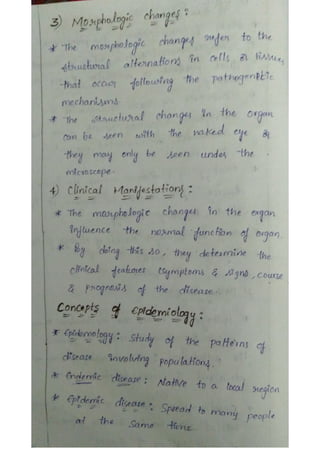 3) Morphologic changes :
* The morphologic changes refer to the
structural alternations in cells or tissues
that occur following the pathogenetic
mechanisms
* The structural changes in the organ
can be seen with the naked eye or
they may only be seen under the
microscope.
4) Clinical Manifestations :
* The morphologic changes in the organ
influence the normal function of organ
* By doing this so, they determine the
clinical features (symptoms & signs, course
& prognosis of the disease.
Concepts of Epidemiology :
* Epidemology : study of the patterns of
disease involving populations.
* Endemic disease : Native to a local region
* Epidemic disease : Spread to many people
at the same time